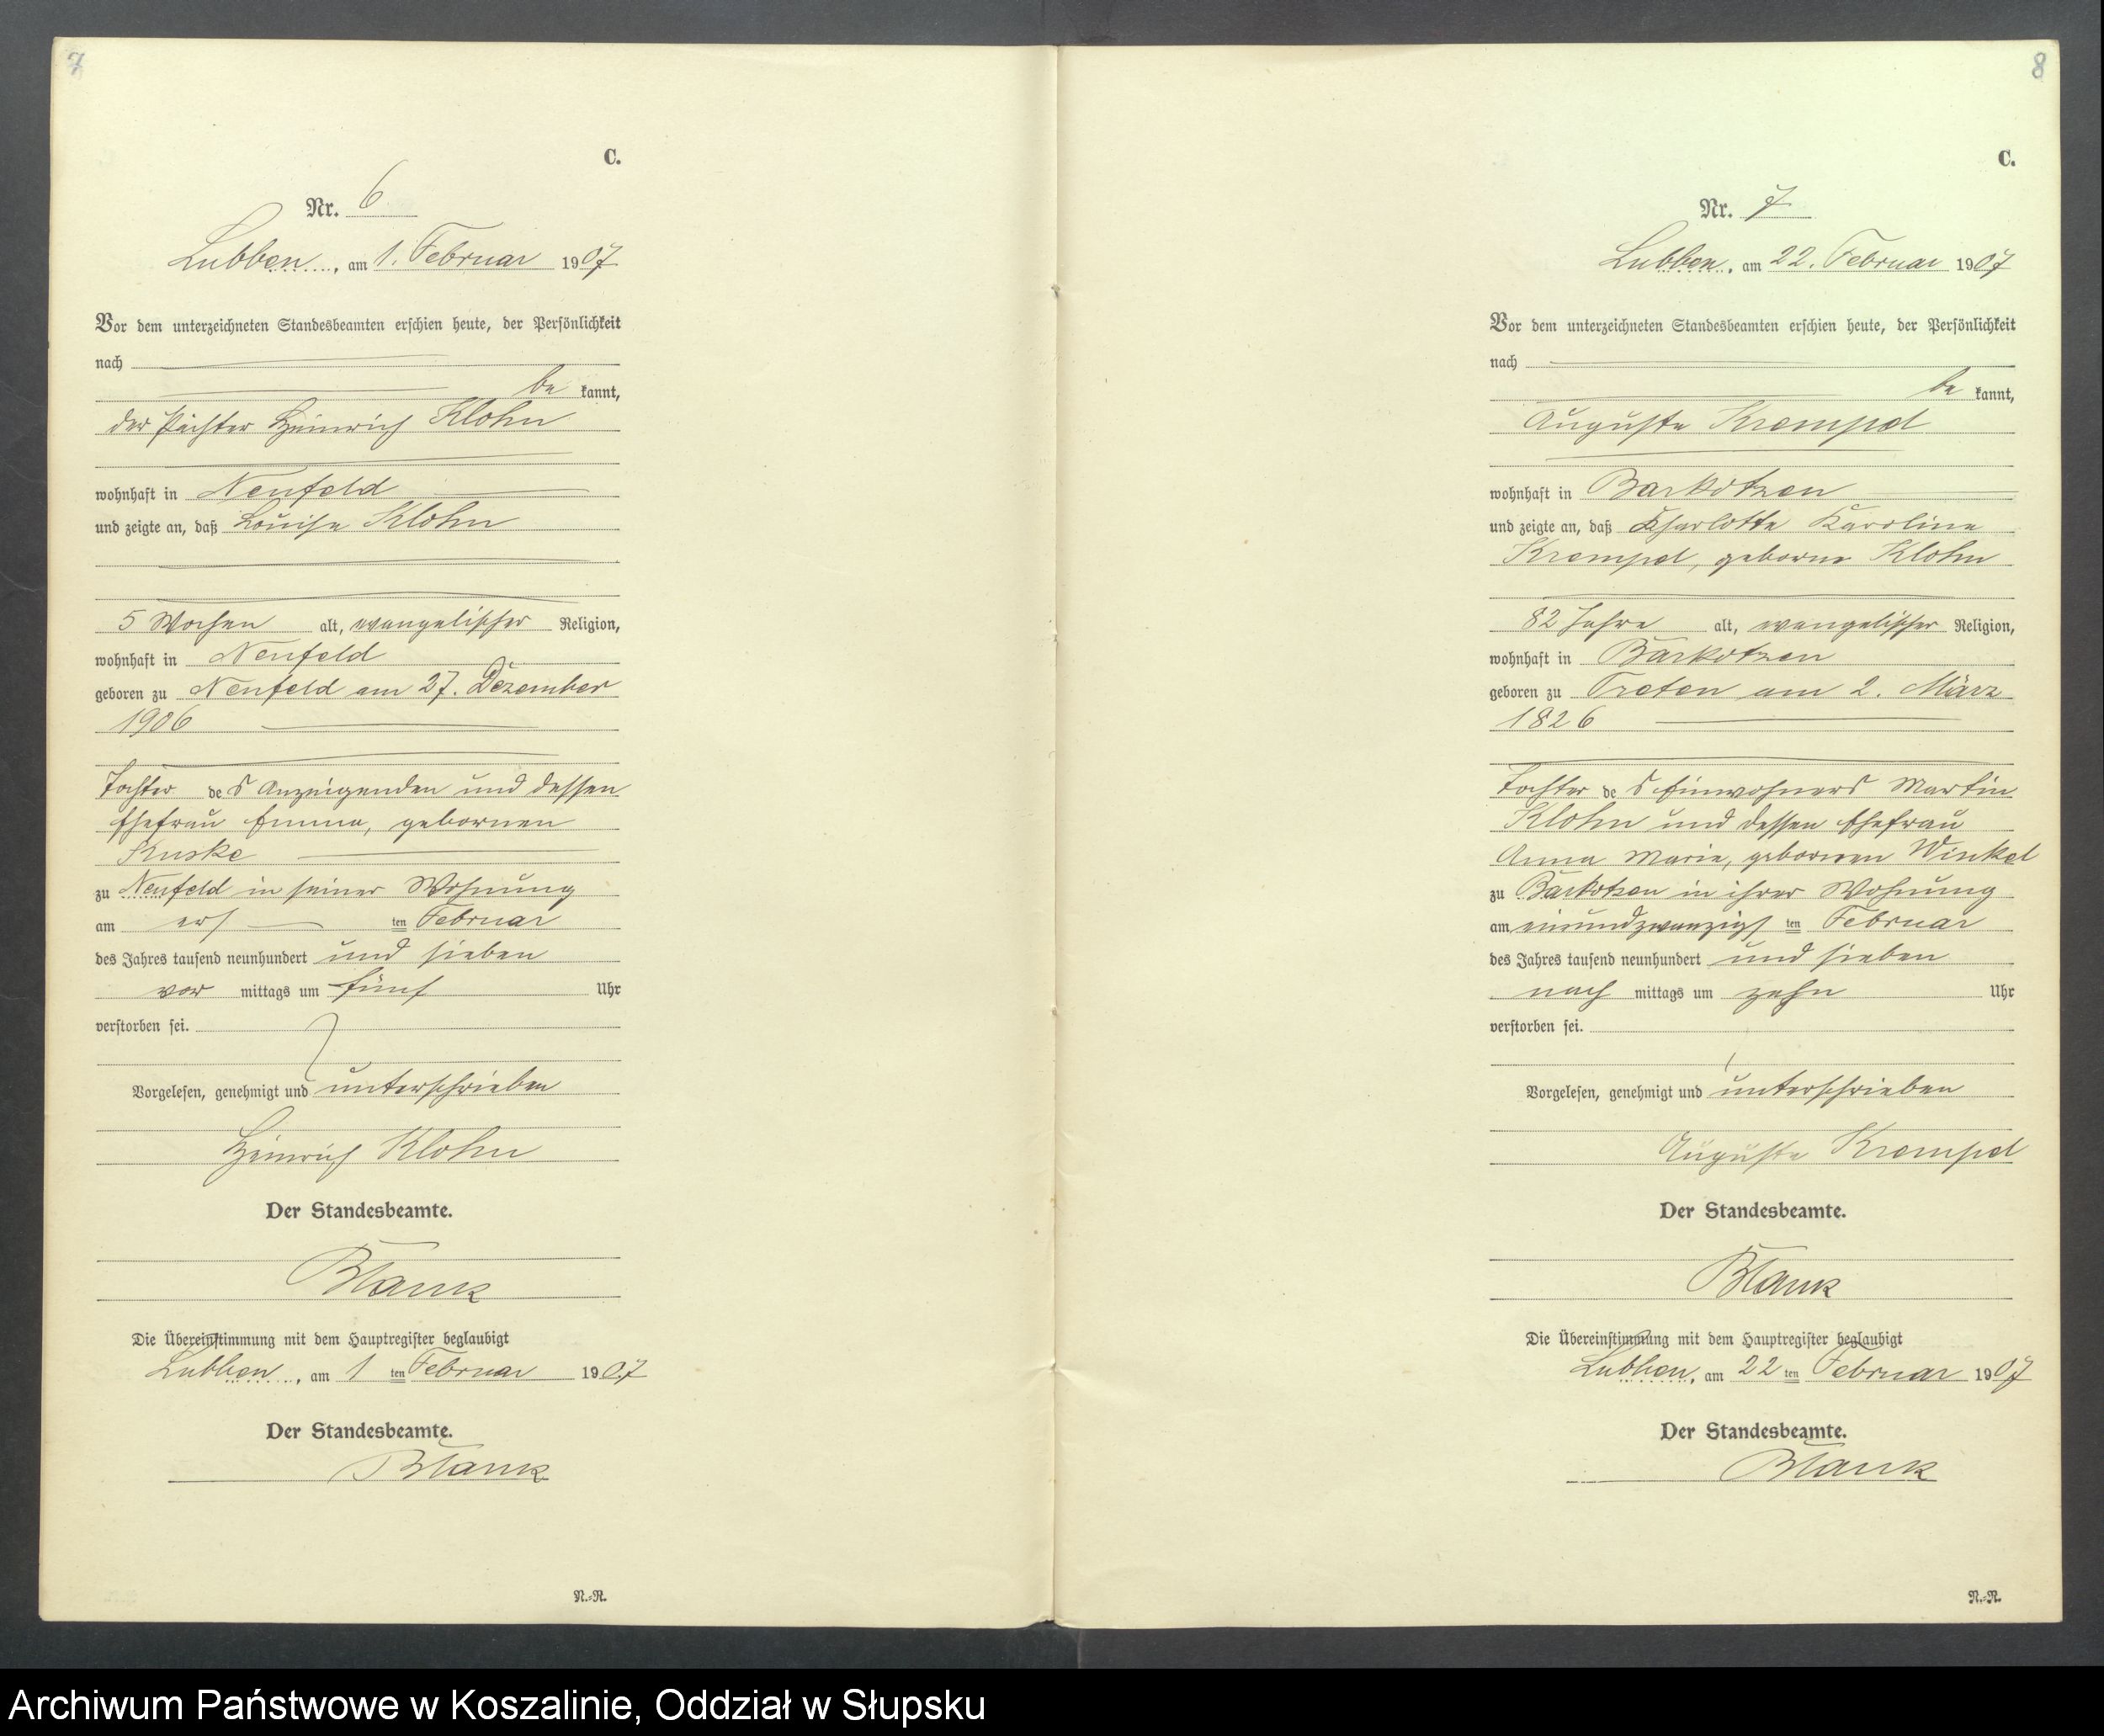 7
C.
Nr. 6
Lubben, am 1. Februar 1907
Vor dem unterzeichneten Standesbeamten erschien heute, der Persönlichkeit
nach
be kannt,
der Pächter Heinrich Klohn
wohnhaft in Neufeld
und zeigte an, daß Louise Klohn
5 Wochen alt, evangelischer Religion,
wohnhaft in Neufeld
geboren zu Neufeld am 27. Dezember
1906
Tochter des Anzeigenden und dessen
Ehefrau Emma, gebornen
Kuske
zu Neufeld in seiner Wohnung
am ersten Februar
des Jahres tausend neunhundert und sieben
vor mittags um fünf Uhr
verstorben sei.
Vorgelesen, genehmigt und unterschrieben
Heinrich Klohn
Der Standesbeamte.
Blank
Die Übereinstimmung mit dem Hauptregister beglaubigt
Lubben, am 1 ten Februar 1907
Der Standesbeamte.
Blank
N.-R.
8
C.
Nr. 7
Lubben, am 22. Februar 1907
Vor dem unterzeichneten Standesbeamten erschien heute, der Persönlichkeit
nach
be kannt,
Auguste Krempel
wohnhaft in Barkotzen
und zeigte an, daß Charlotte Karoline
Krempel, geborne Klohn
82 Jahre alt, evangelischer Religion,
wohnhaft in Barkotzen
geboren zu Treten am 2. März
1826
Tochter des Einwohners Martin
Klohn und dessen Ehefrau
Anna Marie, gebornen Winkel
zu Barkotzen in ihrer Wohnung
am einundzwanzigsten Februar
des Jahres tausend neunhundert und sieben
nach mittags um zehn Uhr
verstorben sei.
Vorgelesen, genehmigt und unterschrieben
Auguste Krempel
Der Standesbeamte.
Blank
Die Übereinstimmung mit dem Hauptregister beglaubigt
Lubben, am 22 ten Februar 1907
Der Standesbeamte.
Blank
N.-R.
Archiwum Państwowe w Koszalinie, Oddział w Słupsku